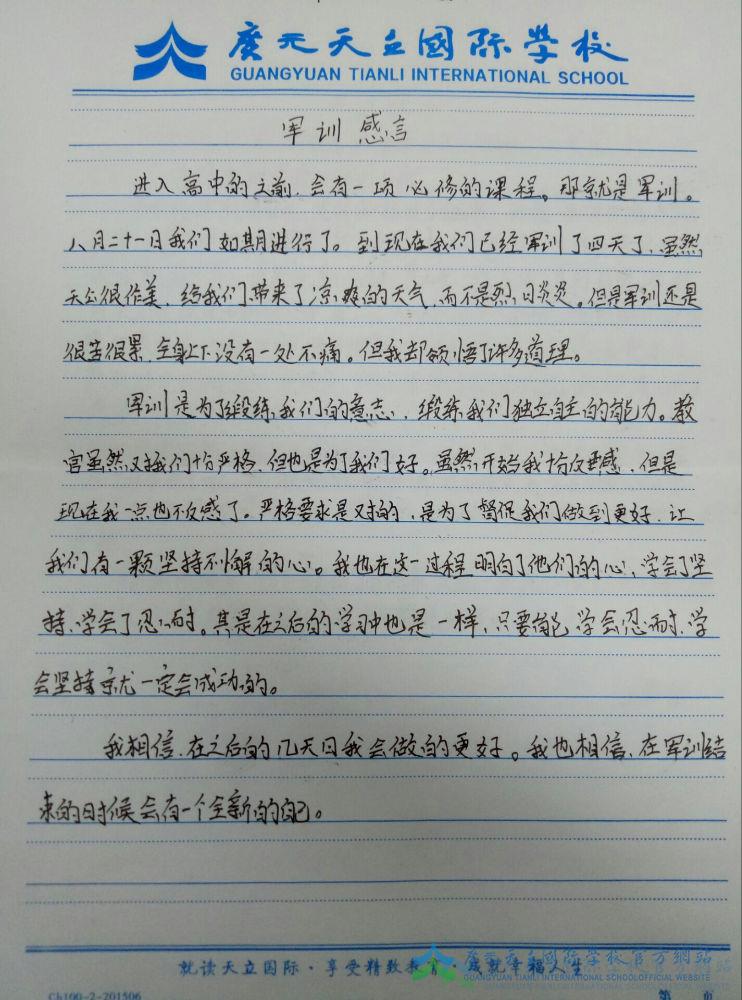 廣元天立國际學校
GUANGYUAN TIANLI INTERNATIONAL SCHOOL
军训感言
进入高中的之前,会有一项必修的课程。那就是军训。
八月二十一日我们如期进行了。到现在我们已经军训了四天了,虽然
天公很作美,给我们带来了凉爽的天气,而不是烈日炎炎。但是军训还是
很苦很累,全身上下没有一处不痛。但我却领悟了许多道理。
军训是为了锻练我们的意志,锻练我们独立自主的能力。教
官虽然对我们十分严格,但也是为了我们好。虽然开始我十分反感,但是
现在我一点也不反感了。严格要求是对的,是为了督促我们做到更好,让
我们有一颗坚持不懈的心。我也在这一过程明白了他们的心,学会了坚
持,学会了忍耐。其是在之后的学习中也是一样,只要能学会忍耐,学
会坚持就一定会成功的。
我相信,在之后的几天日我会做的更好。我也相信,在军训结
束的时候会有一个全新的自己。
廣元天立國际學校官方網站
GUANGYUAN TIANLI INTERNATIONAL SCHOOLOFFICIAL WEBSITE
就读天立国际·享受精致教育·成就幸福人生
Ch100-2-201506
第 页